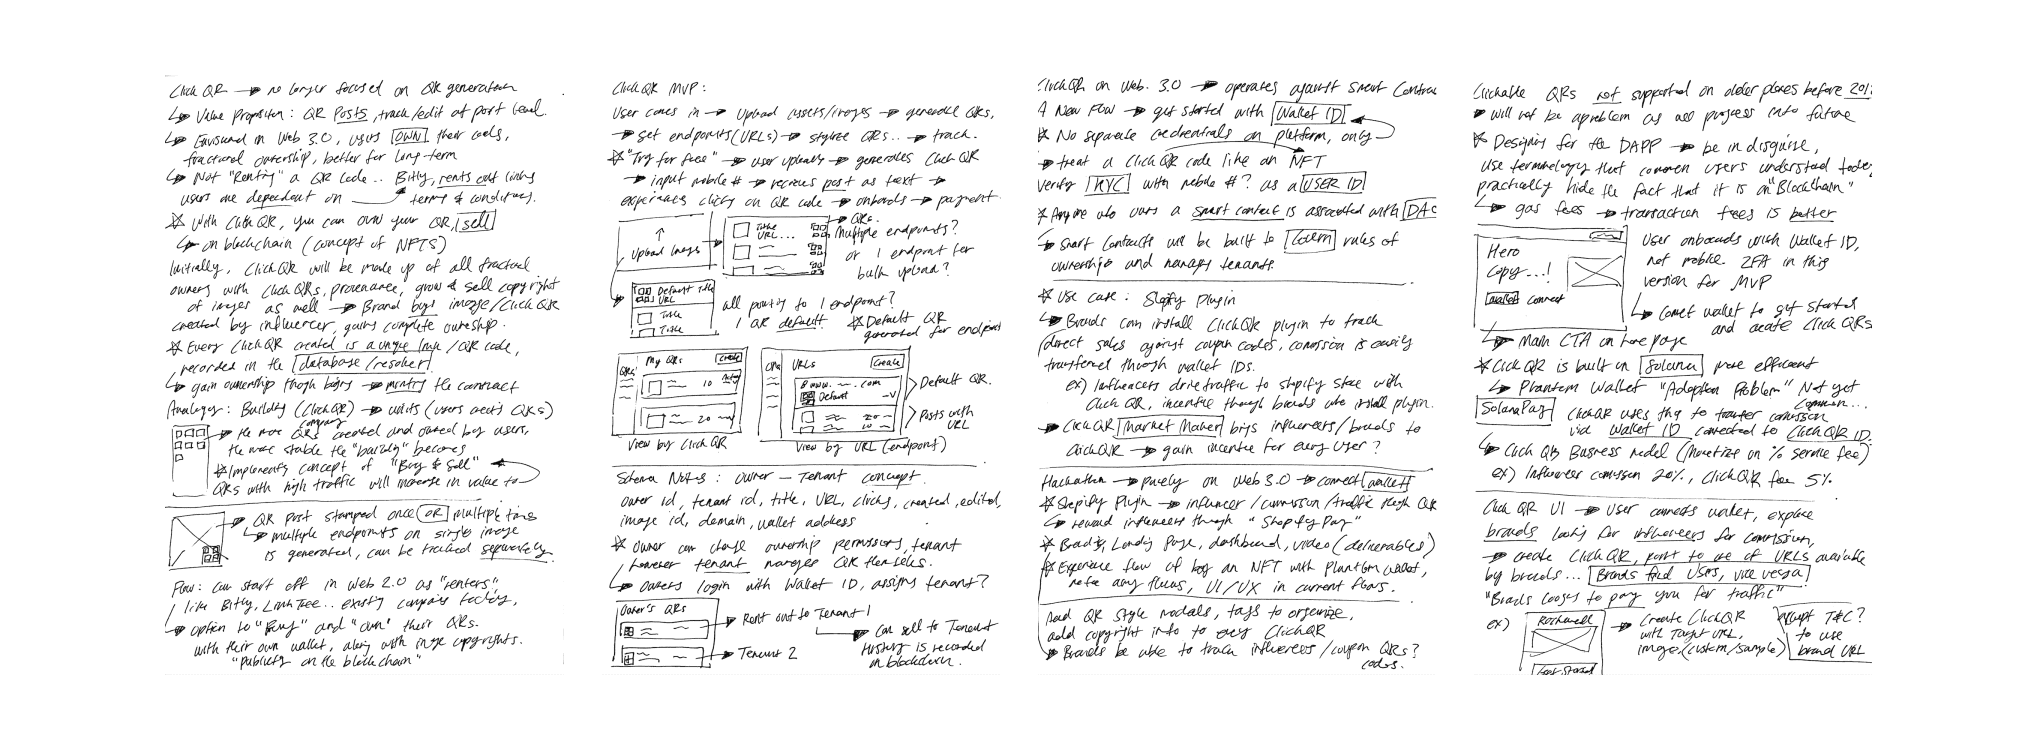 Click QR → no longer focused on QR generation
↳ Value Proposition: QR Posts, track/edit at post level.
↳ Envisioned in Web 3.0, users OWN their codes,
fractional ownership, better for long term
↳ Not "Renting" a QR code.. Bitly, rents out links
users are dependent on terms & conditions.
☆ With ClickQR, you can own your QR, sell
↳ on blockchain (concept of NFTS)
Initially, ClickQR will be made up of all fractional
owners with ClickQRs, provenance, grow & sell copyright
of images as well → Brand buys image/ClickQR
created by influencer, gains complete ownership.
☆ Every ClickQR created is a unique link/QR code,
recorded in the database/resolver
↳ gain ownership though buying → minting the contract
Analogy: Building (ClickQR) → units (users' QRs)
company
→ the more QRs created and owned by users,
the more stable the "building" becomes
☆ Implements concept of "Buy & Sell"
QRs with high traffic will increase in value to
→ QR post stamped once OR multiple times
↳ multiple endpoints on single image
is generated, can be tracked separately.
Flow: Can start off in Web 2.0 as "renters",
like Bitly, LinkTree... existing company today,
→ option to "Buy" and "own" their QRs.
with their own wallet, along with image copyrights.
"publicity on the blockchain"
ClickQR MVP:
User comes in → Upload assets/images → generate QRs,
→ set endpoints (URLs) → stylize QRs.. → track.
☆ "Try for free" → user uploads → generates ClickQR
→ input mobile # → receives post as text →
experiences clicking on QR code → onboards → payment.
↑
Upload Images
Title
URL...
→ QRs.
Multiple endpoints?
or 1 endpoint for
bulk upload?
Default Title
URL
Title
Title
all pointing to 1 endpoint?
1 QR default.
☆ Default QR
generated for endpoint
QRs
My QRs
Create
10
20
URLs
Create
www. ~ . com
Default
20
10
Default QR.
Posts with
URL
View by ClickQR
View by URL (endpoint)
Schema Notes: Owner — Tenant concept.
owner id, tenant id, title, URL, clicks, created, edited,
image id, domain, wallet address
☆ Owner can change ownership permissions, tenant
however tenant manages QR themselves.
↳ owners login with Wallet ID, assigns tenant?
Owner's QRs
→ Rent out to Tenant 1
→ Can sell to Tenant
History is recorded
on blockchain.
→ Tenant 2
ClickQR on Web. 3.0 → operates against Smart Contrac
A New Flow → get started with Wallet ID
☆ No separate credentials on platform, only
→ treat a ClickQR code like an NFT
Verify KYC with mobile #? as a USER ID
☆ Anyone who owns a smart contract is associated with DAC
→ Smart Contracts will be built to Govern rules of
ownership and manage tenants.
☆ Use case: Shopify Plugin
↳ Brands can install ClickQR plugin to track
direct sales against coupon codes, commission is easily
transferred through wallet IDs.
ex) Influencers drive traffic to shopify store with
Click QR, incentive though brands who install plugin.
→ ClickQR Market Maker brings influencers/brands to
ClickQR → gain incentive for every user?
Hackathon → purely on Web 3.0 → connect wallet
☆ Shopify Plugin → influencer/commission/traffic through QR
↳ reward influencers through "Shopify Pay"
☆ Brand, Landing Page, dashboard, video (deliverables)
☆ Experience flow of buying an NFT with Phantom Wallet,
note any flaws, UI/UX in current flows.
Add QR style modals, tags to organize,
add copyright info to every ClickQR
→ Brands be able to track influencers/coupon QRs?
codes.
Clickable QRs not supported on older phones before 201
→ will not be a problem as we all progress into future
☆ Designing for the DAPP → be in disguise,
use terminology that common users understand today
practically hide the fact that it is on "Blockchain"
↳ gas fees → transaction fees is better
Hero
Copy...!
wallet connect
User onboards with Wallet ID,
not mobile 2FA in this
version for MVP
↳ Connect wallet to get started
and create Click QRs
↳ Main CTA on home page
☆ Click QR is built on Solana more efficient
↳ Phantom Wallet "Adoption Problem" Not yet
common...
SolanaPay ClickQR uses this to transfer commission
via Wallet ID connected to ClickQR ID.
↳ Click QR's Business Model (Monetize on % service fee)
ex) Influencer commission 20%, ClickQR fee 5%
Click QR UI → User connects wallet, explore
brands looking for influencers for commission,
→ create ClickQR, point to one of URLs available
by brands... Brands find Users, vice versa
"Brands looking to pay you for traffic"
ex)
Rockwell
Get Started
→ Create ClickQR
with Target URL,
image (custom/sample)
Accept T&C?
to use
brand URL